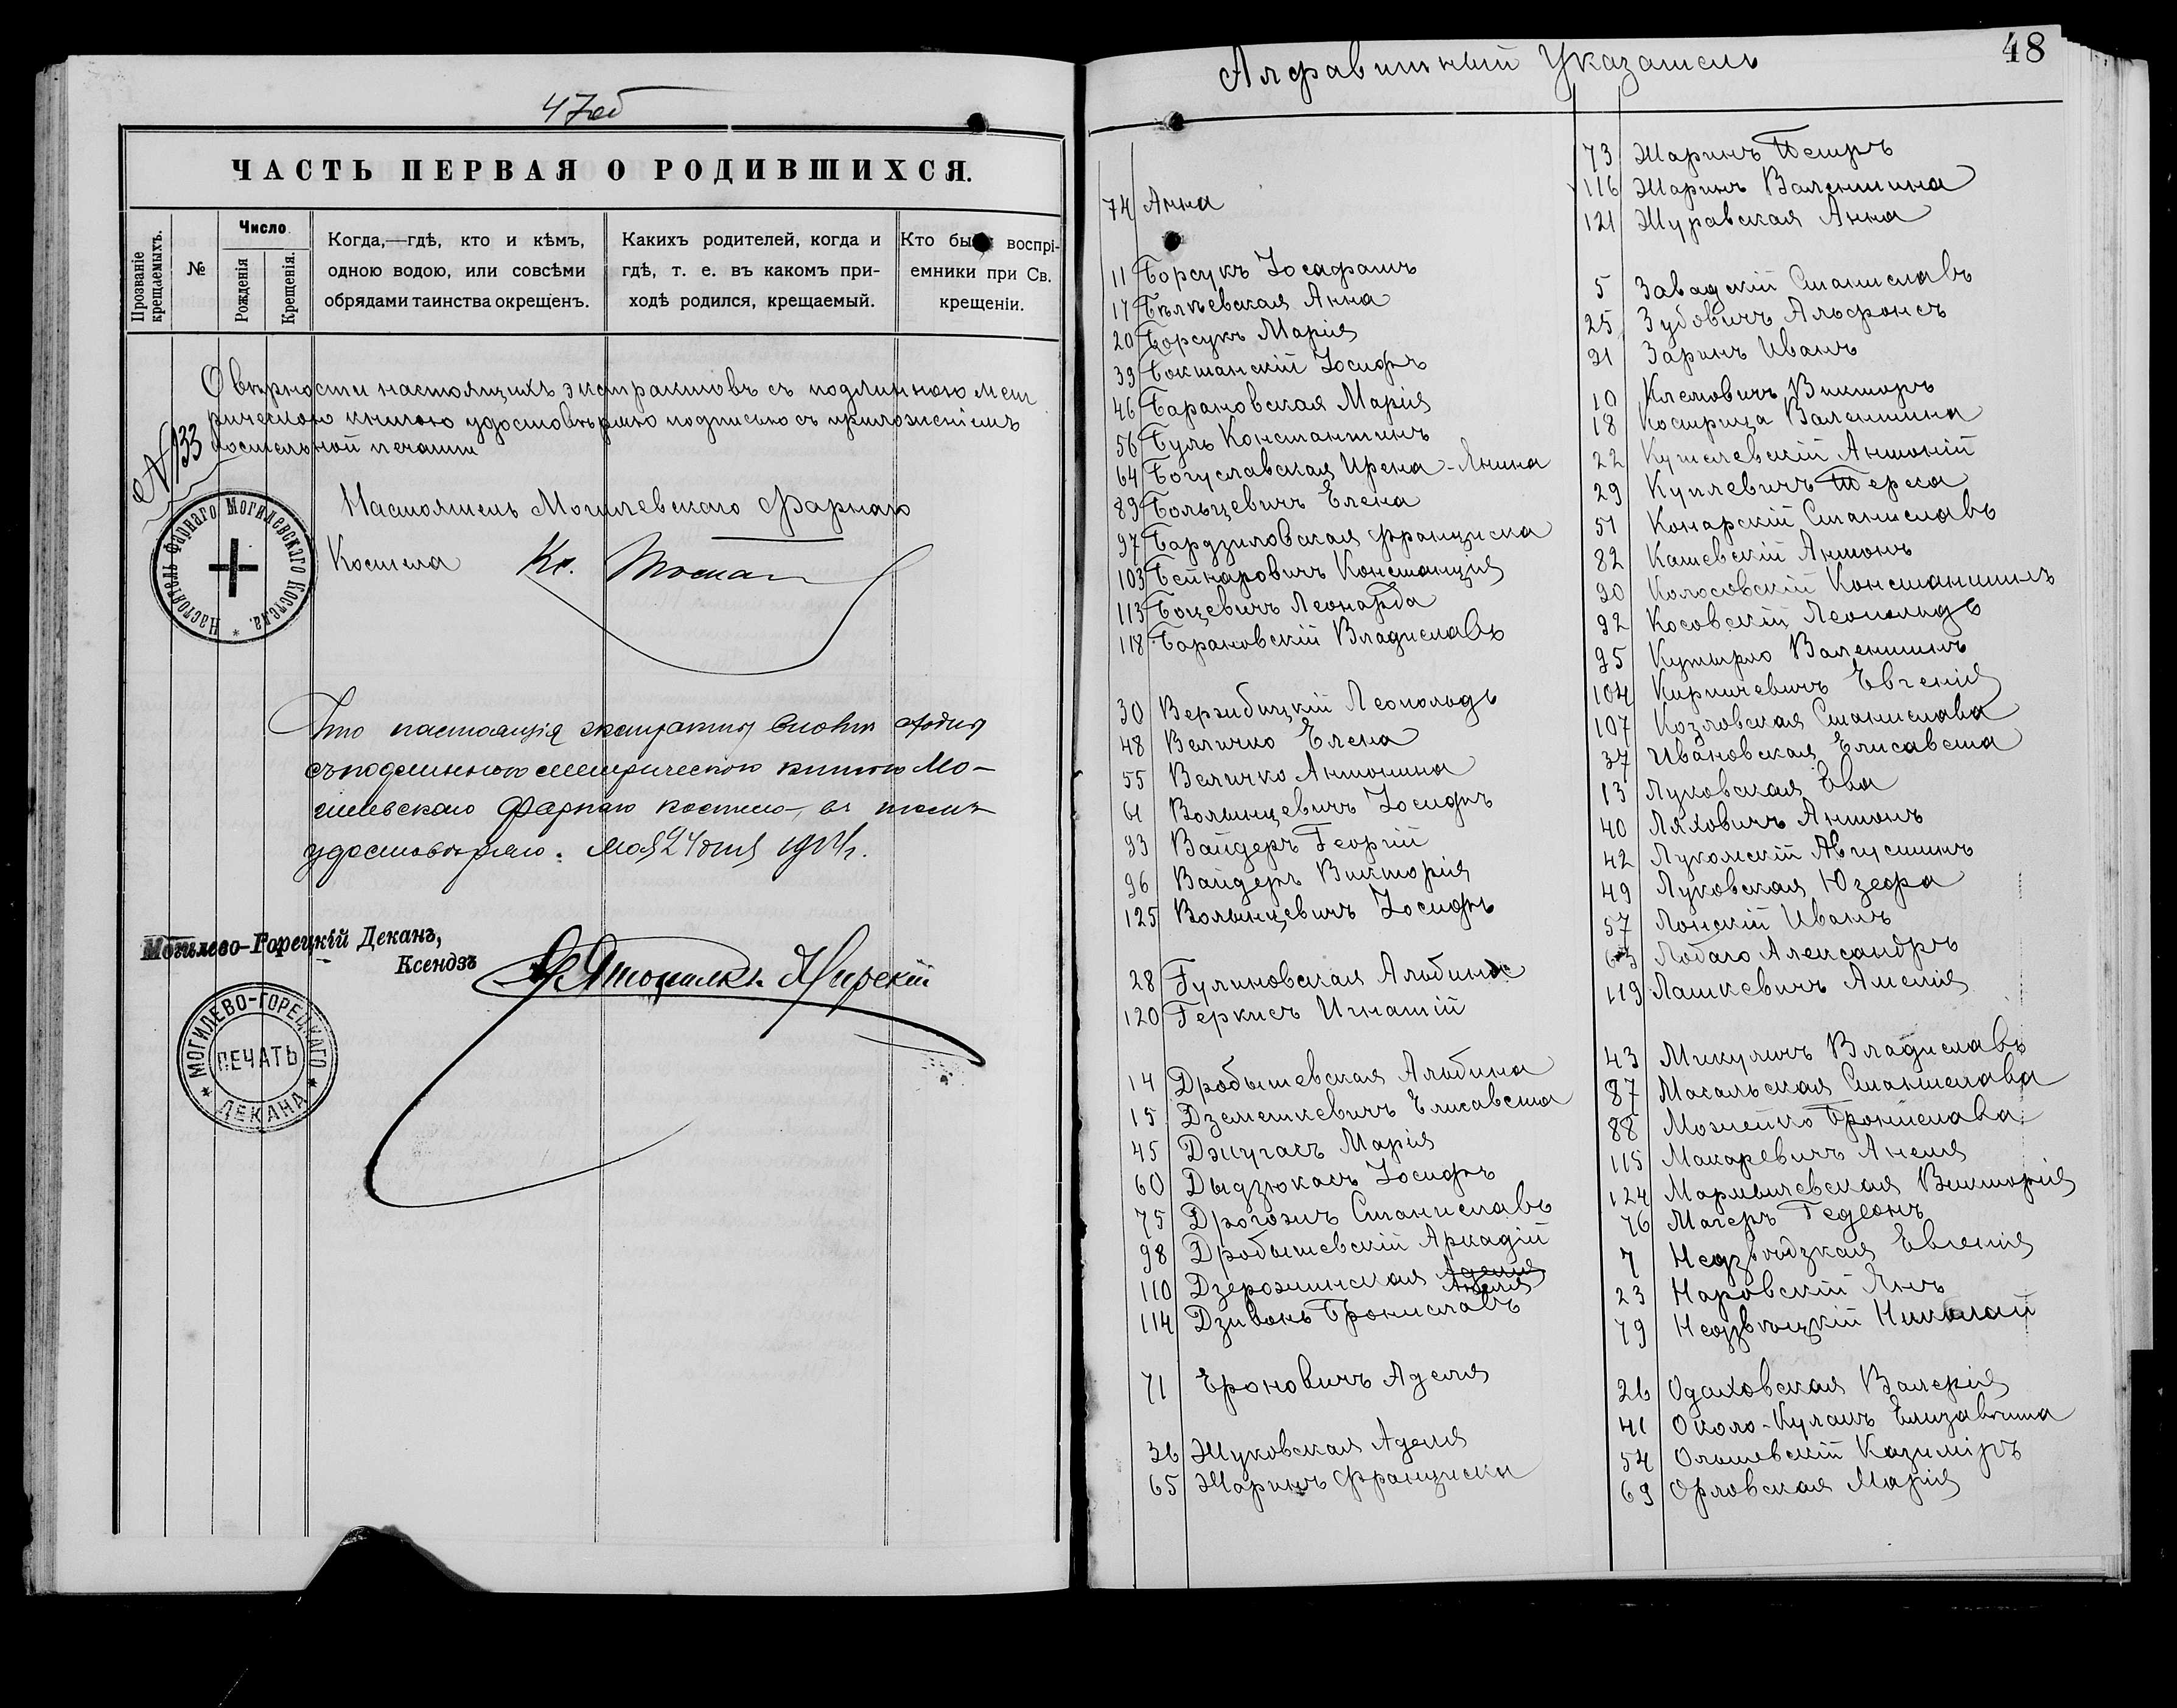 47об
ЧАСТЬ ПЕРВАЯ О РОДИВШИХСЯ.
Прозваніе крещаемыхъ.
№
Число
Рожденія
Крещенія.
Когда,—гдѣ, кто и кѣмъ,
одною водою, или совсѣми
обрядами таинства окрещенъ.
Какихъ родителей, когда и
гдѣ, т. е. въ какомъ при-
ходѣ родился, крещаемый.
Кто бы воспрі-
емники при Св.
крещеніи.
О вѣрности настоящихъ экстрактовъ съ подлинною мет
рическою книгою удостовѣряю подписью съ приложеніемъ
костельной печати
№133
Настоятель Могилевскаго Фарнаго
Костела Кс.
Настоятель Фарнаго Могилевскаго Костела.
Что настоящія экстракты вполнѣ сходны
съ подлинною метрическою книгою Мо-
гилевскаго Фарнаго костела, въ томъ
удостовѣряю. Мая 24 дня
Могилево-Горецкій Деканъ,
Ксендзъ
МОГИЛЕВО-ГОРЕЦКАГО ДЕКАНА
ПЕЧАТЬ
48
Алфавитный Указатель
74 Анна
11 Борсукъ Іосафатъ
17 Бѣлѣевская Анна
20 Борсукъ Марія
39 Бокшанскій Іосифъ
46 Барановская Марія
56 Буль Константинъ
64 Богуславская Ирена-Янина
89 Больцевичъ Елена
97 Бардзиловская Франциска
103 Бейнаровичъ Констанція
113 Боцевичъ Леонарда
118 Барановскій Владиславъ
30 Вержбицкій Леопольдъ
48 Величко Елена
55 Величко Антонина
61 Волынцевичъ Іосифъ
93 Вайдеръ Георгій
96 Вайдеръ Викторія
125 Волынцевичъ Іосифъ
28 Гулиновская Альбина
120 Геркисъ Игнатій
14 Дробышевская Альбина
15 Дземешкевичъ Елисавета
45 Джугасъ Марія
60 Дыдзюкасъ Іосифъ
75 Дрогожъ Станиславъ
98 Дробышевскій Аркадій
110 Дзержинская Аделя
114 Дзивонь Брониславъ
71 Ероновичъ Аделя
36 Жуковская Аделя
65 Жаринъ Франциска
73 Жаринъ Петръ
116 Жаринъ Валентина
121 Журавская Анна
5 Завадскій Станиславъ
25 Зубовичъ Альфонсъ
91 Заринъ Иванъ
10 Клемовичъ Викторъ
18 Кострица Валентина
22 Кушелевскій Антоній
29 Куплевичъ Тереса
51 Конарскій Станиславъ
82 Кашевскій Антонъ
90 Колосовскій Константинъ
92 Косовскій Леопольдъ
95 Валентинъ
104 Кирпичевичъ Евгенія
107 Козловская Станислава
37 Ивановская Елисавета
13 Луковская Ева
40 Ляховичъ Антонъ
42 Лукомскій Августинъ
49 Луковская Юзефа
57 Лонскій Иванъ
63 Лобаго Александръ
119 Лашкевичъ Амелія
43 Микуличъ Владиславъ
87 Масальская Станислава
88 Можейко Бронислава
115 Макаревичъ Анеля
124 Викторія
76 Магеръ Гедеонъ
7 Недзвѣдзкая Евгенія
23 Наровскій Янъ
79 Недзвѣцкій Николай
26 Одаховская Валерія
41 Около-Кулакъ Елизавѣта
54 Ольшевскій Казиміръ
69 Орловская Марія